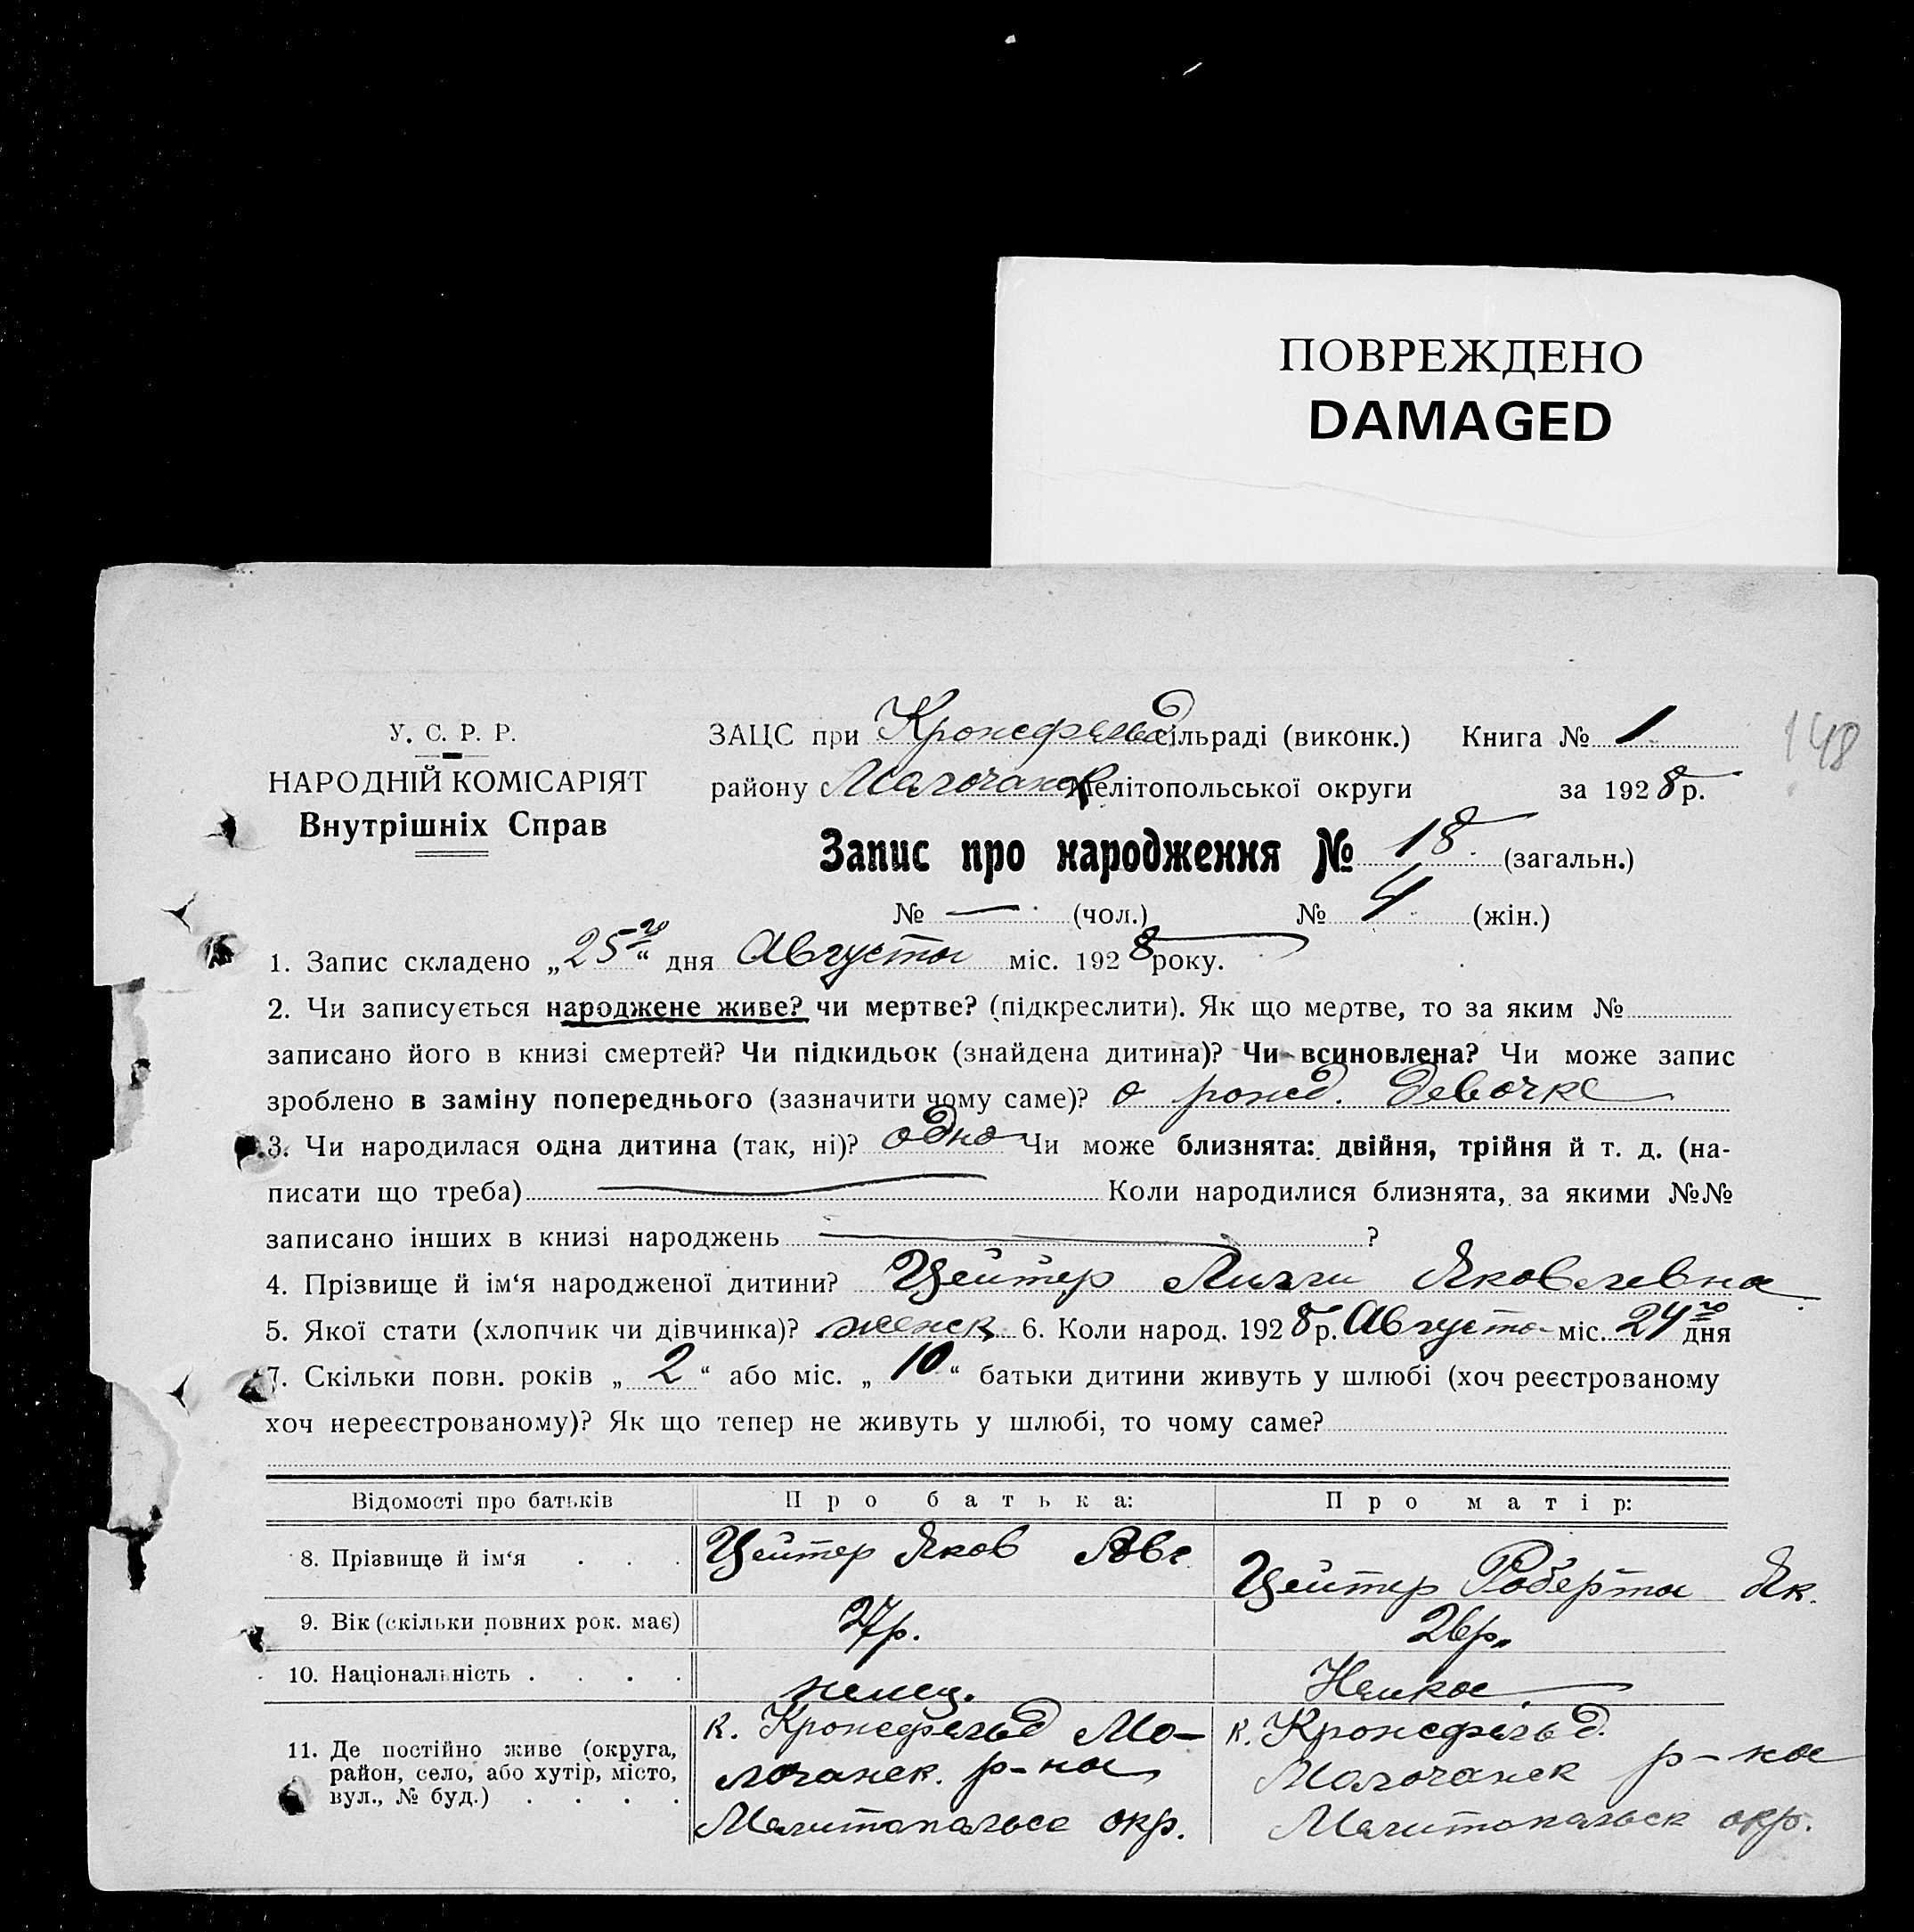 ПОВРЕЖДЕНО
DAMAGED
148
У. С. Р. Р.
НАРОДНІЙ КОМІСАРІЯТ
Внутрішніх Справ
ЗАЦС при Кронсфельд сільраді (виконк.) Книга № 1
району Молочанск Мелітопольської округи за 1928 р.
Запис про народження № 18 (загальн.)
№ — (чол.) № 4 (жін.)
1. Запис складено „25го“ дня Августа міс. 1928 року.
2. Чи записується народжене живе? чи мертве? (підкреслити). Як що мертве, то за яким №
записано його в книзі смертей? Чи підкидьок (знайдена дитина)? Чи всиновлена? Чи може запис
зроблено в заміну попереднього (зазначити чому саме)? о рожд. девочке
3. Чи народилася одна дитина (так, ні)? одна Чи може близнята: двійня, трійня й т. д. (на-
писати що треба) Коли народилися близнята, за якими №№
записано інших в книзі народжень ?
4. Прізвище й ім‘я народженої дитини? Цейтер Лилли Яковлевна
5. Якої стати (хлопчик чи дівчинка)? женск 6. Коли народ. 1928 р. Августа міс. 24го дня
7. Скільки повн. років „2“ або міс. „10“ батьки дитини живуть у шлюбі (хоч реєстрованому
хоч нереєстрованому)? Як що тепер не живуть у шлюбі, то чому саме?
Відомості про батьків Про батька: Про матір:
8. Прізвище й ім‘я . . . Цейтер Яков Явг. Цейтер Роберта Як.
9. Вік (скільки повних рок. має) 27р. 26р.
10. Національність . . . . немец. Немка
11. Де постійно живе (округа, район, село, або хутір, місто, вул., № буд.) . . . .
к. Кронсфельд Мо-
лочанск. р-на
Мелитопольск окр.
к. Кронсфельд.
Молочанск р-на
Мелитопольск окр.